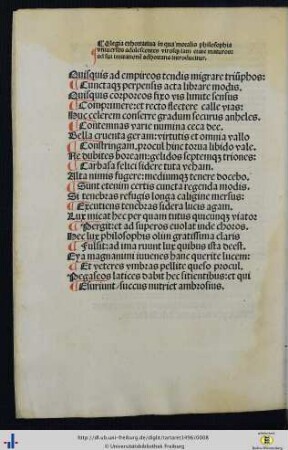 Elegia exhortatiua in qua moralis philosophia
vniuersos adulescentes virosq; iam euo maturos
ad sui imitationem adhortans introducitur.
Quisquis ad empireos tendis migrare triũphos:
Cunctaq; perpensis acta librare modis.
Quisquis corporeos fixo vis limite sensus
Componere: et recto flectere calle vias:
Huc celerem conferre gradum securus anheles.
Contemnas varie numina ceca dee.
Bella cruenta geram: virtutis et omnia vallo
Constringam. procul hinc torua libido vale.
Ne dubites boream: gelidos septemq; triones:
Carbasa felici sidere tuta veham.
Alta nimis fugere: mediumq; tenere docebo.
Sunt etenim certis cuncta regenda modis.
Si tenebras refugis longa caligine mersus:
Excutiens tenebras sidera lucis agam.
Lux micat hec per quam tutus quicunq; viator
Pergit: et ad superos euolat inde choros.
Hec lux philosophis olim gratissima claris
Fulsit: ad ima ruunt lux quibus ista deest.
Exa magnanimi iuuenes hanc querite lucem:
Et veteres vmbras pellite queso procul.
Pegaseos latices dabit hec sitientibus: et qui
Esuriunt/succus nutriet ambrosius.
http://dl.ub.uni-freiburg.de/diglit/tartaret1496/0008
© Universitätsbibliothek Freiburg